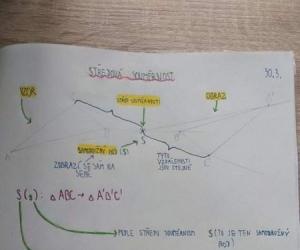 STŘEDOVÁ SOUMĚRNOST
30.3.
VZOR
STŘED SOUMĚRNOSTI
OBRAZ
S
SAMODRUŽNÝ BOD (S)
ZOBRAZÍ SE SÁM NA
SEBE
TYTO
VZDÁLENOSTI
JSOU STEJNÉ
A
C
S(s): △ABC → △A'B'C'
PODLE STŘEDU SOUMĚRNOSTI S (TO JE TEN SAMODRUŽNÝ
BOD)